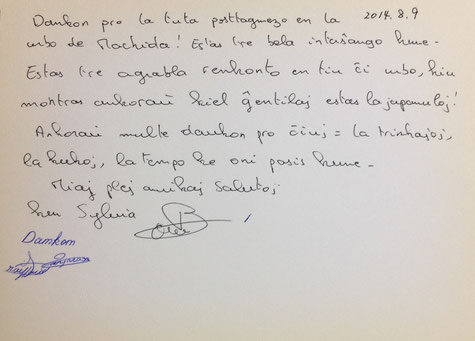 Dankon pro la tuta posttagmezo en la 2014.8.9
urbo de Machida! Estas tre bela interŝanĝo kune.
Estas tre agrabla renkonto en tiu ĉi urbo, kiu
montras ankoraŭ kiel ĝentilaj estas la japanuloj!
Ankoraŭ multe dankon pro ĉiuj = la trinkaĵoj,
la kukoj, la tempo ke oni pasis kune.
Miaj plej amikaj salutoj
Sylvia
Dankon